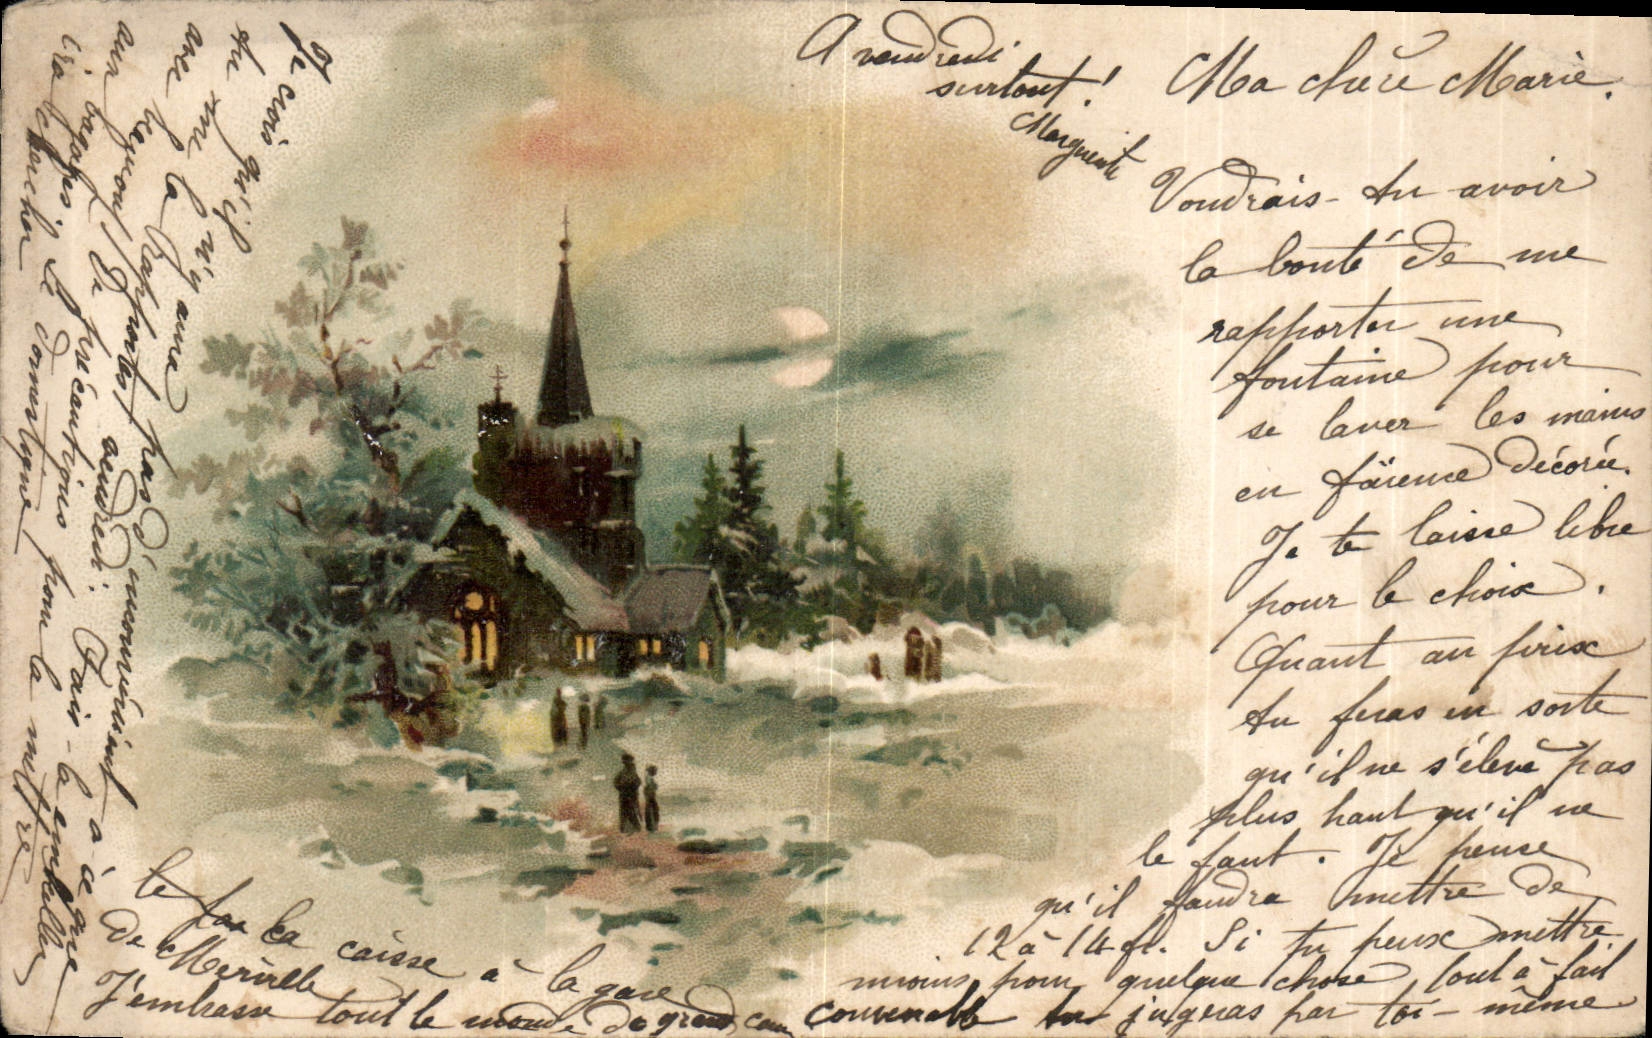 Ma chère Marie.
Voudrais-tu avoir
la bonté de me
rapporter une
fontaine pour
se laver les mains
en faïence décorée.
Je te laisse libre
pour le choix.
Quant au prix
tu feras en sorte
qu'il ne s'élève pas
plus haut qu'il ne
le faut. Je pense
qu'il faudra mettre de
12 à 14 f. Si tu peux mettre
moins pour quelque chose tout à fait
convenable tu jugeras par toi-même
Je crois qu'il
tu me
avec la
rapportes pas d'inconvénient à ce que
bagages vendredi. Fais-la emballer
précautions pour la mettre
chercher le domestique
la caisse à la gare
de Méréville
J'embrasse tout le monde de grand cœur
A vendredi
surtout!
Marguerite